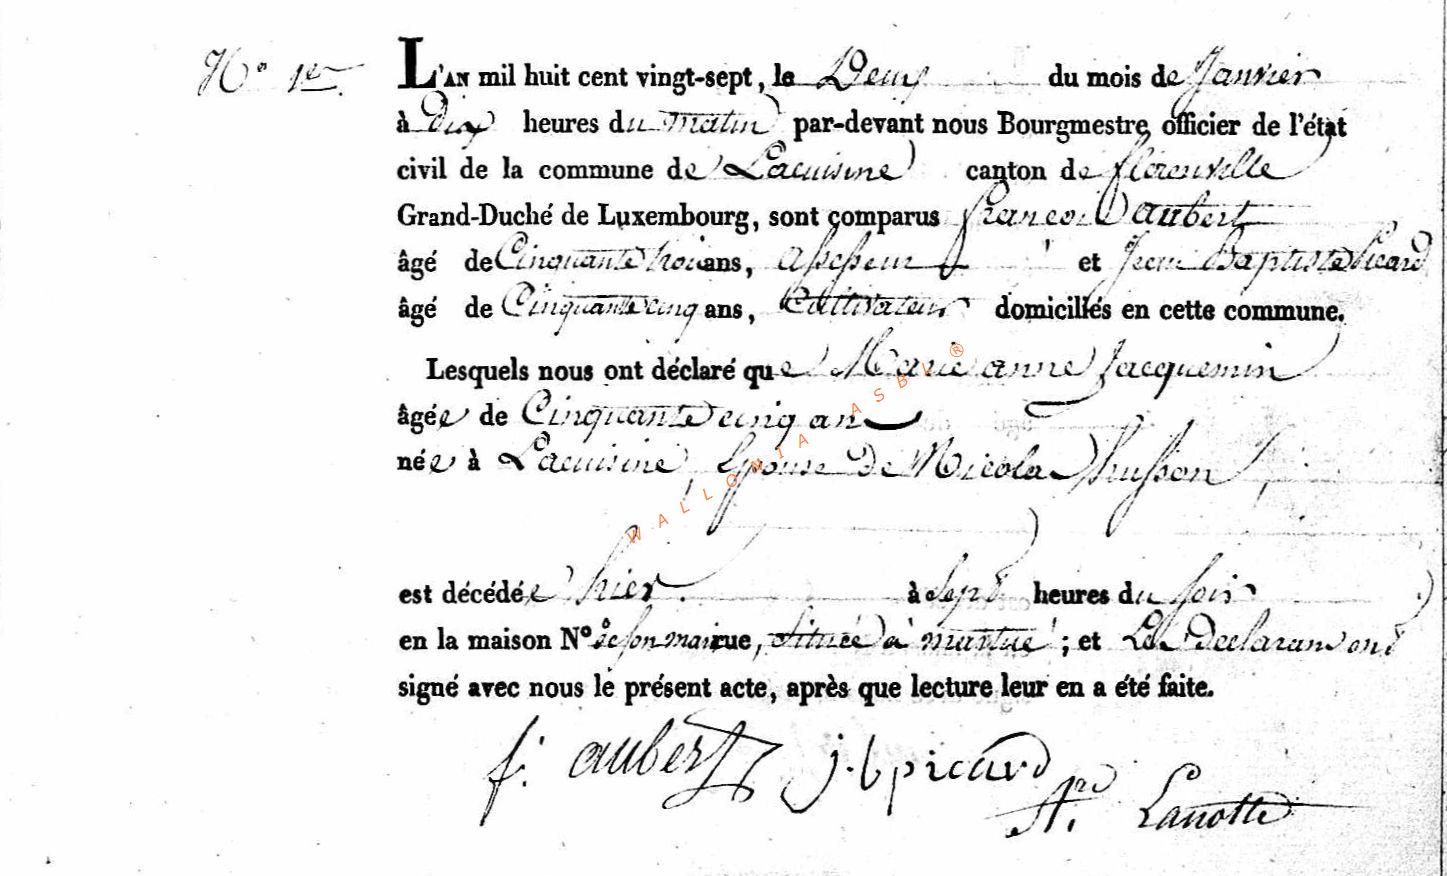 No 1er. L'AN mil huit cent vingt-sept, le Deux du mois de Janvier
à dix heures du matin par-devant nous Bourgmestre officier de l'état
civil de la commune de Lacuisine canton de florenville
Grand-Duché de Luxembourg, sont comparus françois aubert
âgé de Cinquante trois ans, assesseur et Jean Baptiste Picard
âgé de Cinquante cinq ans, Cultivateur domiciliés en cette commune.
Lesquels nous ont déclaré que Marie anne Jacquemin
âgée de Cinquante cinq ans
née à Lacuisine, Epouse de Nicolas husson,
est décédée hier. à Sept heures du soir
en la maison No de son mari rue, située à martué ; et Les Declarans ont
signé avec nous le présent acte, après que lecture leur en a été faite.
f. aubert j. b picard
Lanotte
WALLONIA ASBL ®